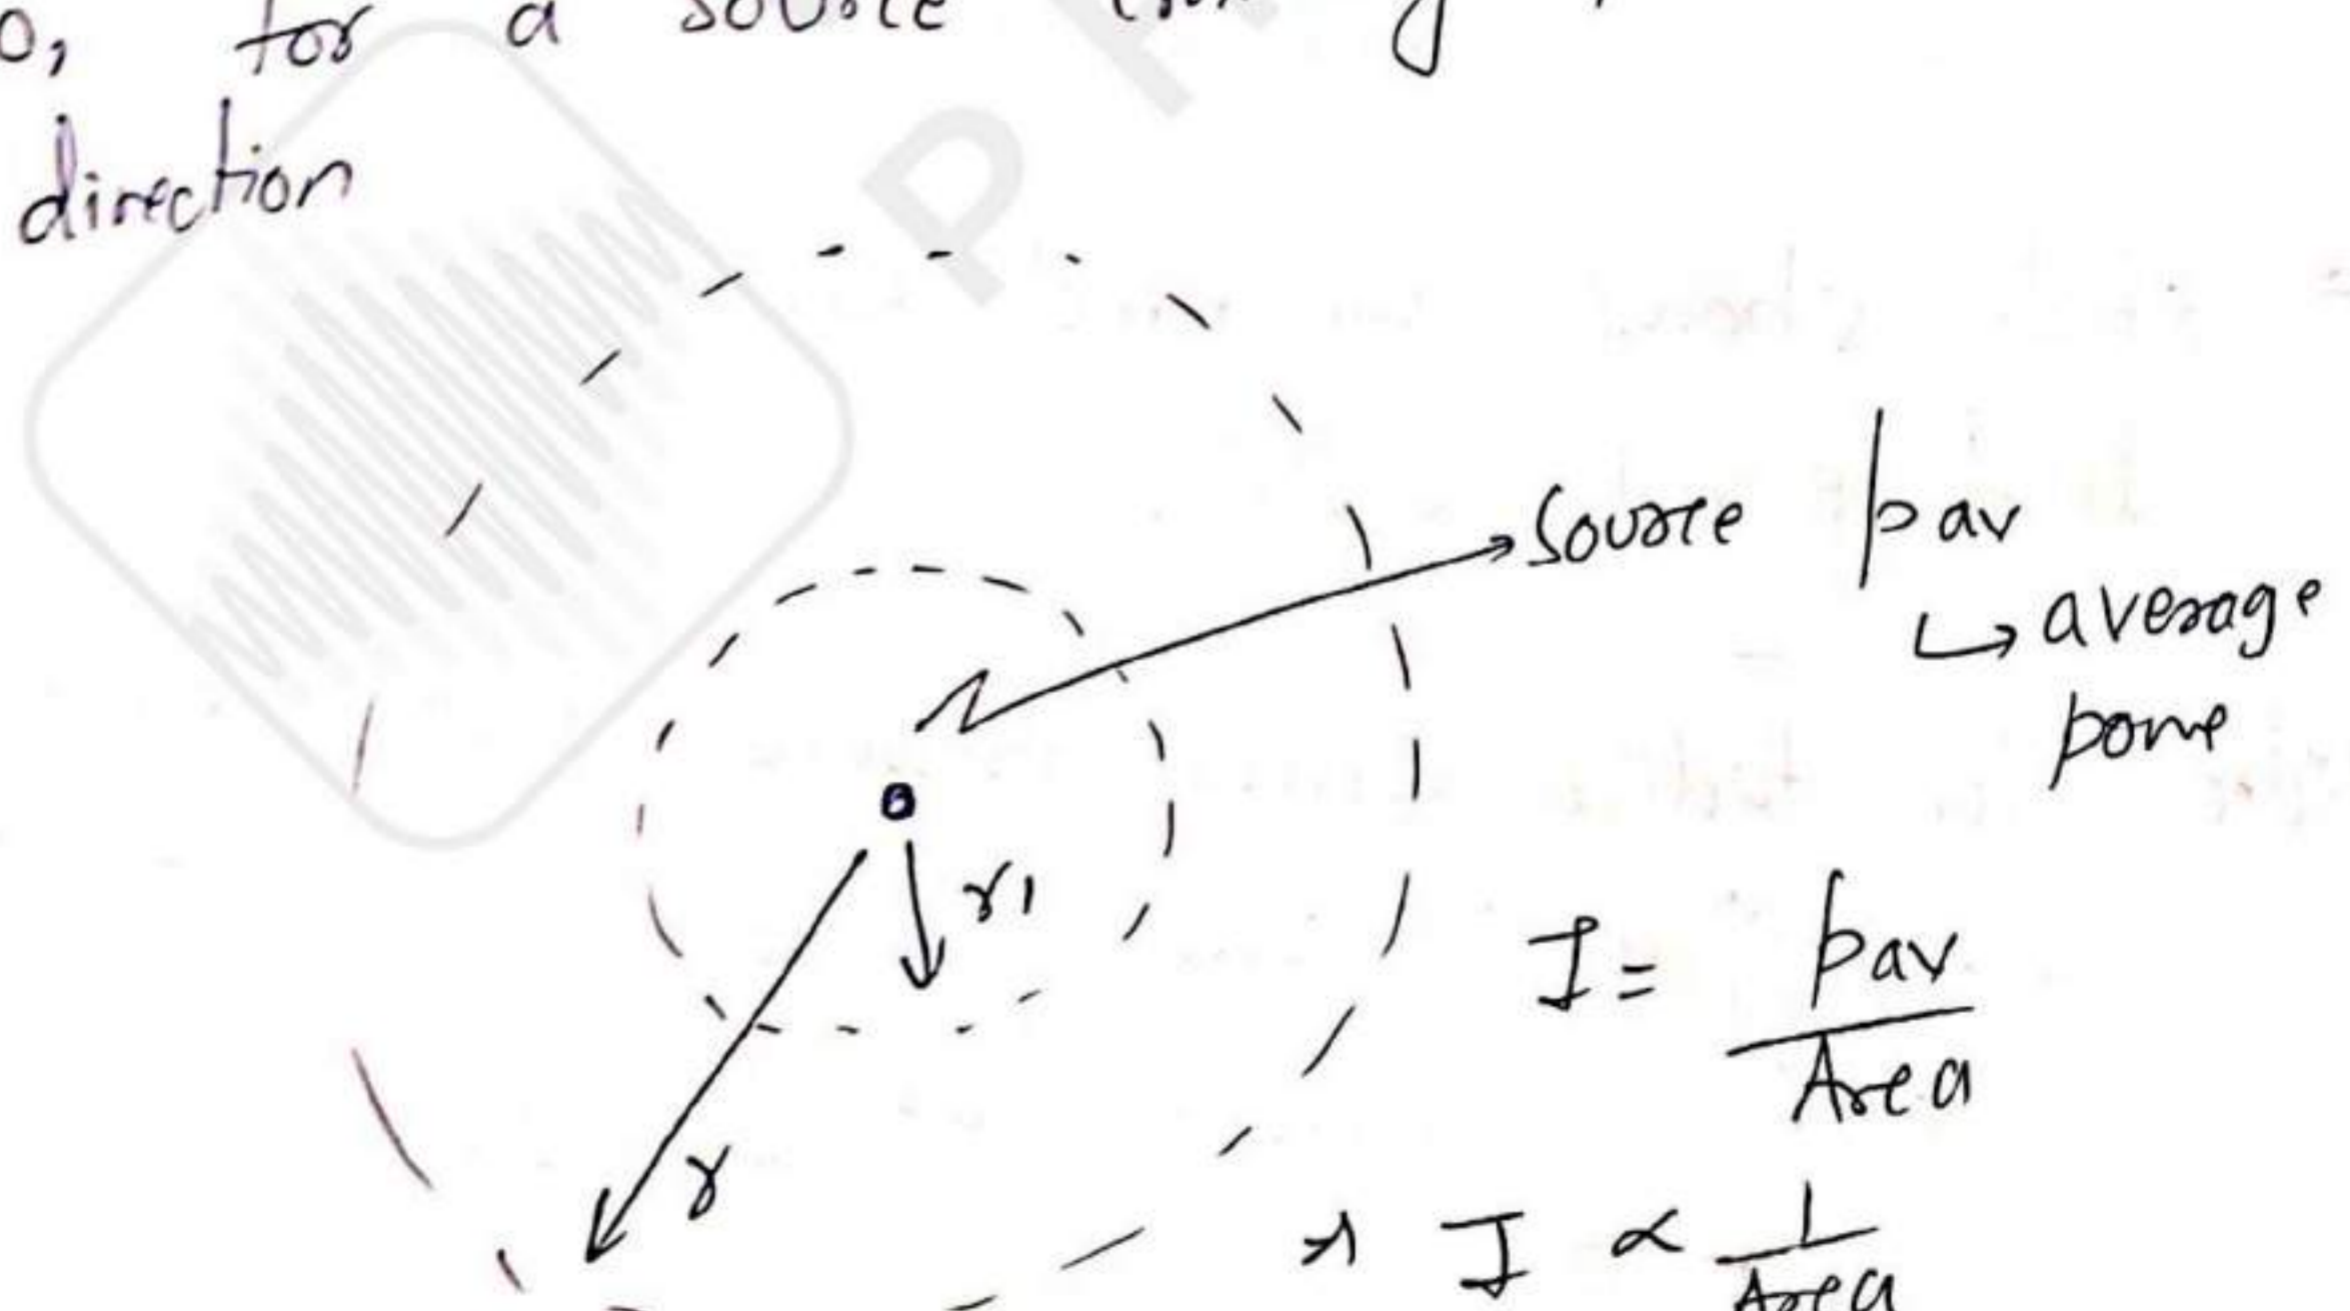 for a source
direction
P
source pav
↳ average
powe
r1
I = pav
Area
r
I ∝ 1
Area